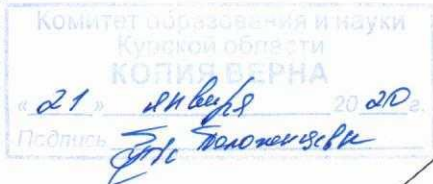 Комитет образования и науки
Курской области
КОПИЯ ВЕРНА
« 21 » января 20 20 г.
Подпись